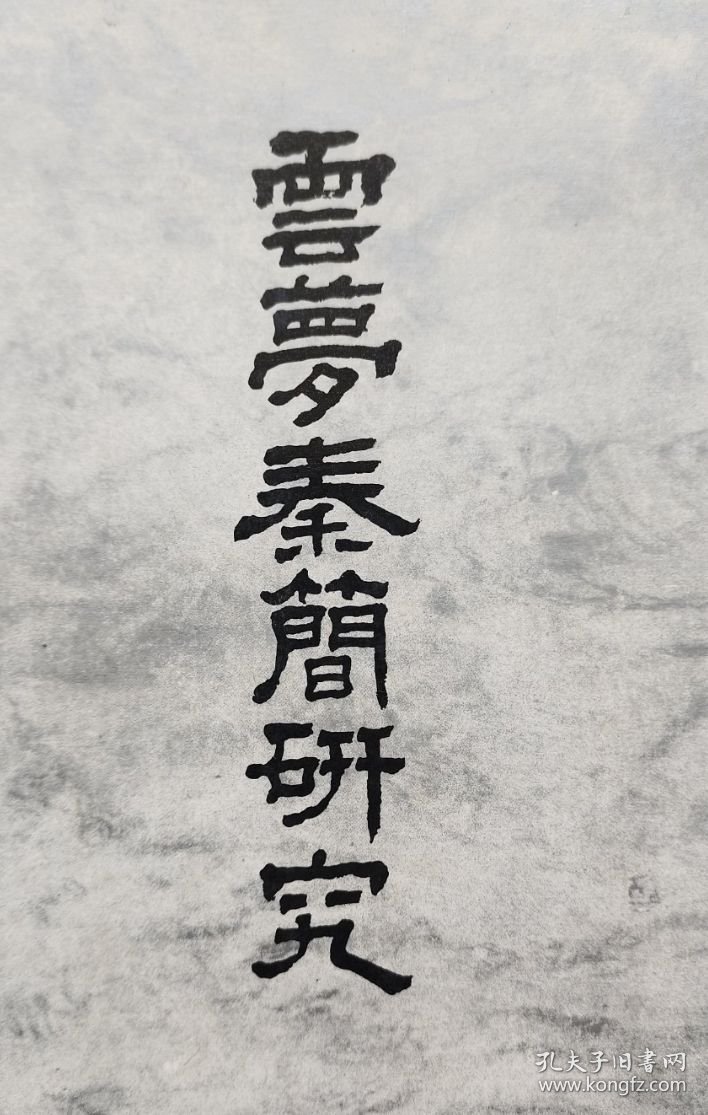 雲夢秦簡研究
孔夫子旧書网
www.kongfz.com